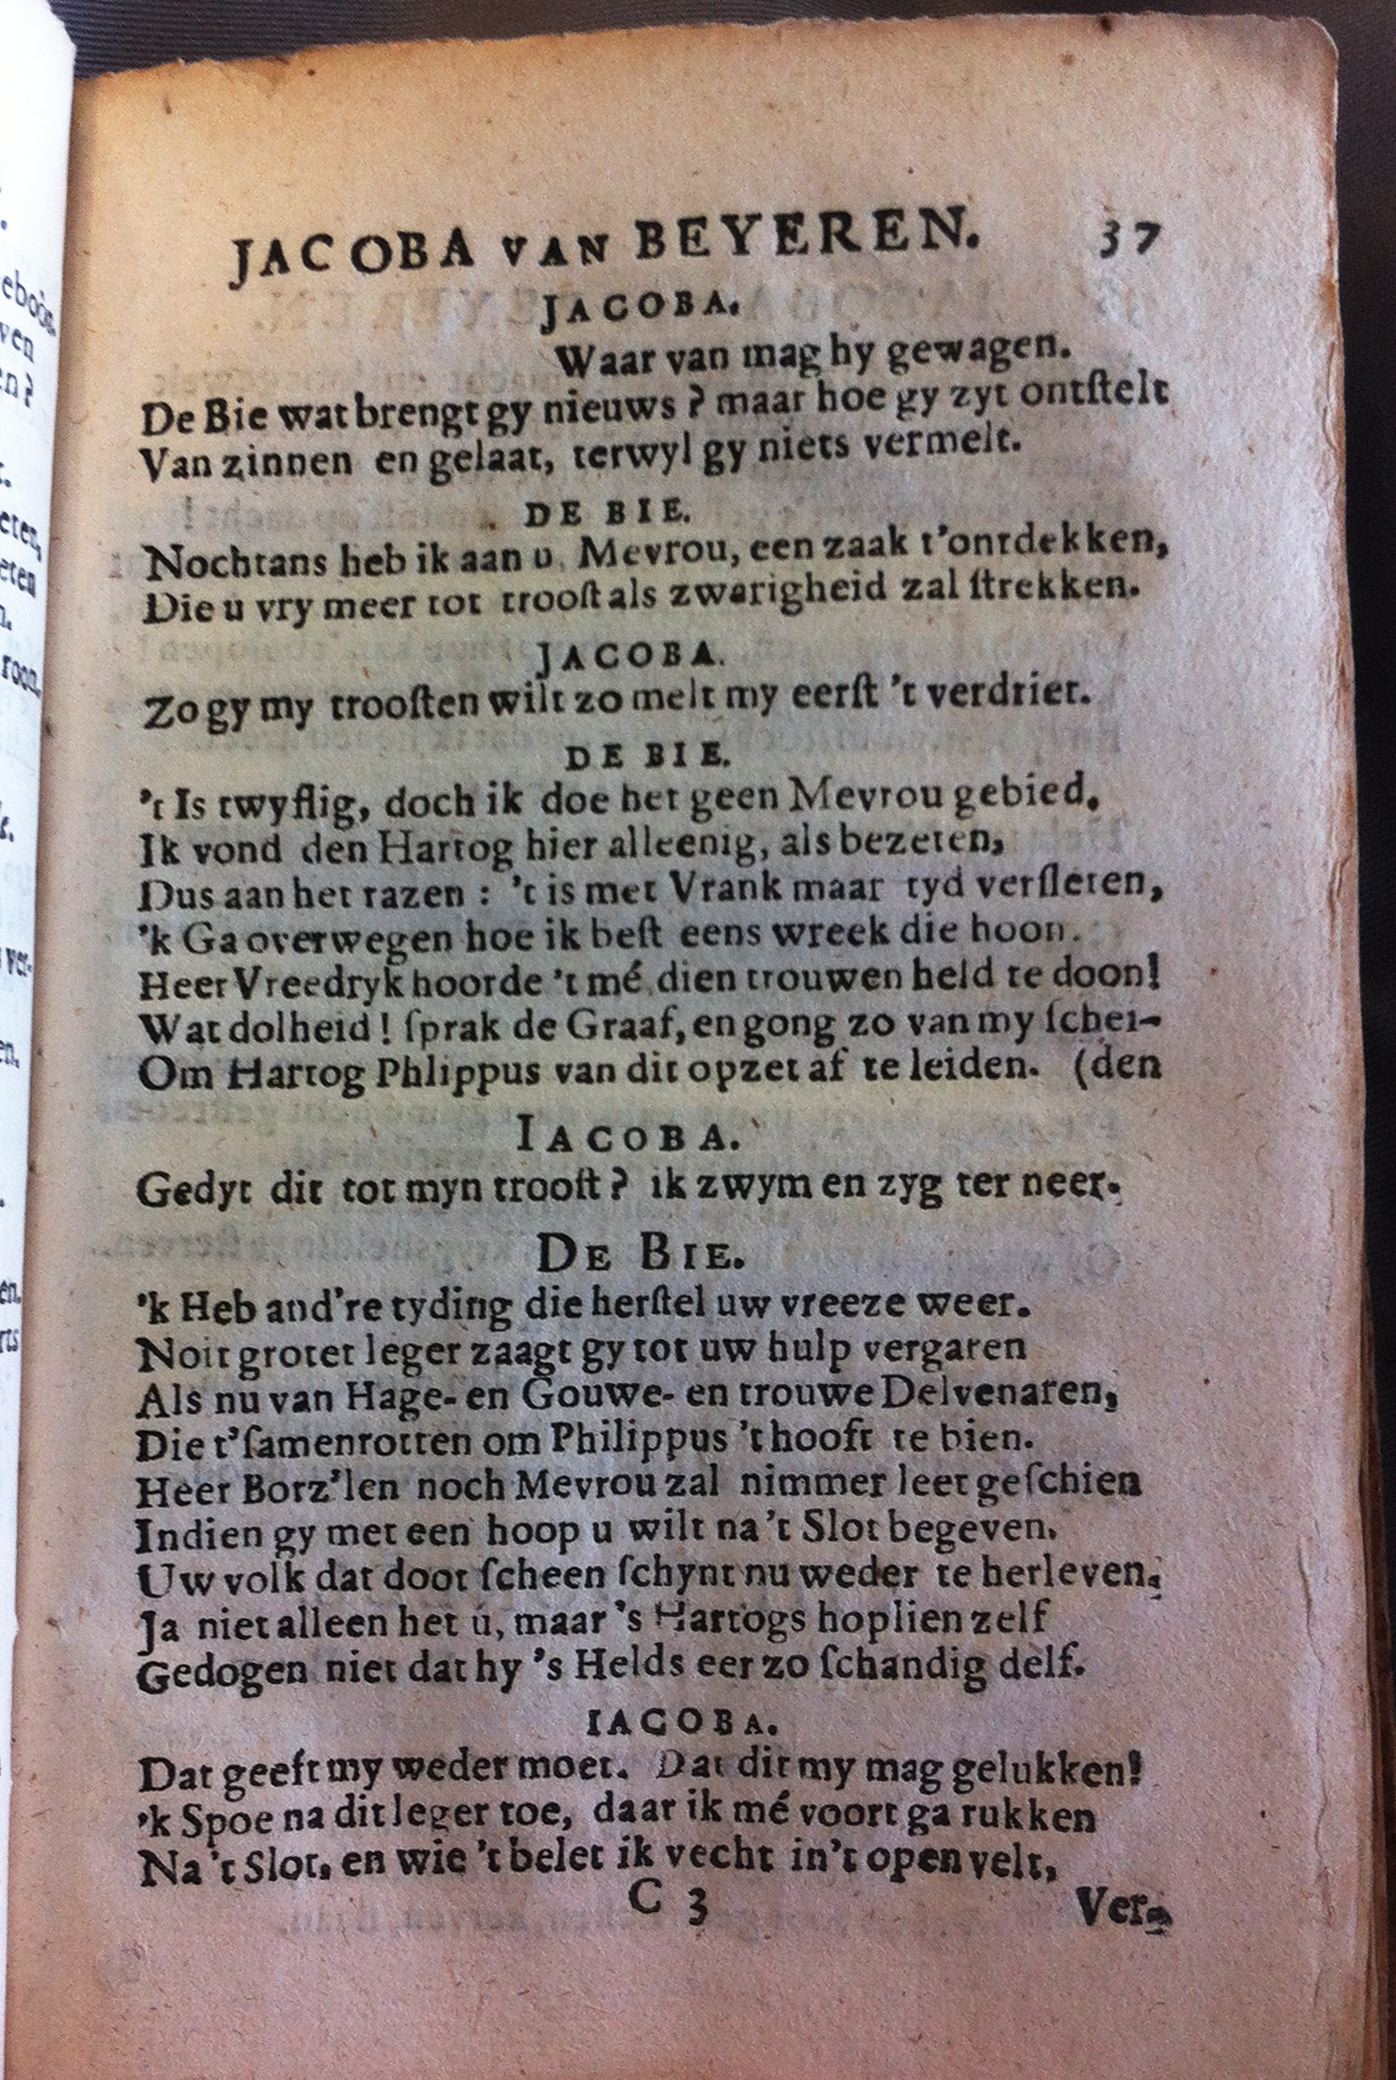 JACOBA VAN BEYEREN. 37
JACOBA.
Waar van mag hy gewagen.
De Bie wat brengt gy nieuws ? maar hoe gy zyt ontſtelt
Van zinnen en gelaat, terwyl gy niets vermelt.
DE BIE.
Nochtans heb ik aan u, Mevrou, een zaak t'ontdekken,
Die u vry meer tot trooſt als zwarigheid zal ſtrekken.
JACOBA.
Zo gy my trooſten wilt zo melt my eerſt 't verdriet.
DE BIE.
't Is twyflig, doch ik doe het geen Mevrou gebied.
Ik vond den Hartog hier alleenig, als bezeten,
Dus aan het razen : 't is met Vrank maar tyd verſleten,
'k Ga overwegen hoe ik beſt eens wreek die hoon.
Heer Vreedryk hoorde 't mé dien trouwen held te doon!
Wat dolheid! ſprak de Graaf, en gong zo van my ſchei-
Om Hartog Phlippus van dit opzet af te leiden. (den
IACOBA.
Gedyt dit tot myn trooſt? ik zwym en zyg ter neer.
DE BIE.
'k Heb and're tyding die herſtel uw vreeze weer.
Noit groter leger zaagt gy tot uw hulp vergaren
Als nu van Hage- en Gouwe- en trouwe Delvenaren,
Die t'ſamenrotten om Philippus 't hooft te bien.
Heer Borz'len noch Mevrou zal nimmer leet geſchien
Indien gy met een hoop u wilt na 't Slot begeven.
Uw volk dat doot ſcheen ſchynt nu weder te herleven,
Ja niet alleen het ú, maar 's Hartogs hoplien zelf
Gedogen niet dat hy 's Helds eer zo ſchandig delf.
IACOBA.
Dat geeft my weder moet. Dat dit my mag gelukken!
'k Spoe na dit leger toe, daar ik mé voort ga rukken
Na 't Slot, en wie 't belet ik vecht in't open velt,
C 3 Ver-